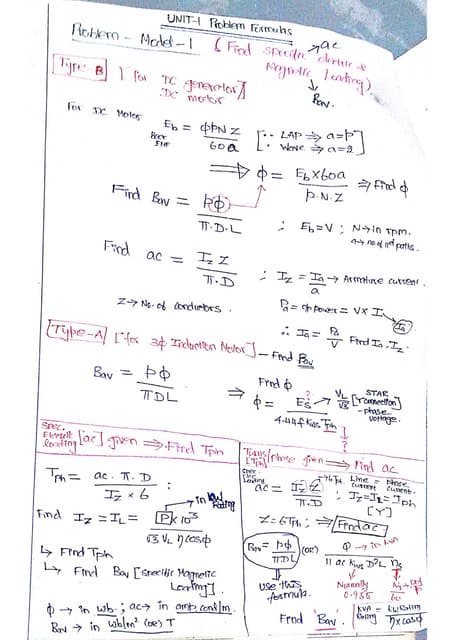 UNIT-1 Problem Formulas
Problem - Model-1 ( Find specific electric & Magnetic Loading)
→ ac
↓ Bav.
Type B [ for DC generator // DC motor
For DC Motor
Eb = ϕPNZ / 60a
Back EMF
[∵ LAP ⇒ a=P
Wave ⇒ a=2]
⇒ ϕ = Eb×60a / P.N.Z ⇒ Find ϕ
Find Bav = pϕ / π.D.L
; Eb=V ; N→in rpm.
a→ no. of llel paths.
Find ac = Iz Z / π.D ; Iz = Ia / a → Armature current.
Z→ No. of conductors.
Pa = o/p power = V× I (Ia)
∴ Ia = Pa / V Find Ia, Iz.
Type-A [for 3ϕ Induction Motor] - Find Bav
Bav = pϕ / πDL
Find ϕ
⇒ ϕ = Es / 4.44 f kws Tph
→ VL / √3 [STAR connection] - phase voltage.
?
?
Spec. Electric loading [ac] given ⇒ Find Tph
Tph = ac. π. D / Iz × 6 ;
→ in kW rating
Find Iz = IL = P×10³ / √3 VL η cosϕ
↳ Find Tph
↳ Find Bav [Specific Magnetic Loading]
ϕ → in wb ; ac → in amp.cond/m.
Bav → in wb/m² (or) T
Turns/phase given ⇒ Find ac
[Tph]
Spec. Loading
ac = Iz Z / π.D
; Line = phase current current.
Iz = IL = Iph
[Y]
Z = 6Tph ; ⇒ Find ac
Bav = pϕ / πDL (or) Q → in kVA / 11 ac kws D²L ns
↓ use this formula.
↓ Normally 0.955
Find 'Bav'.
KVA Rating = kW Rating / η×cosϕ